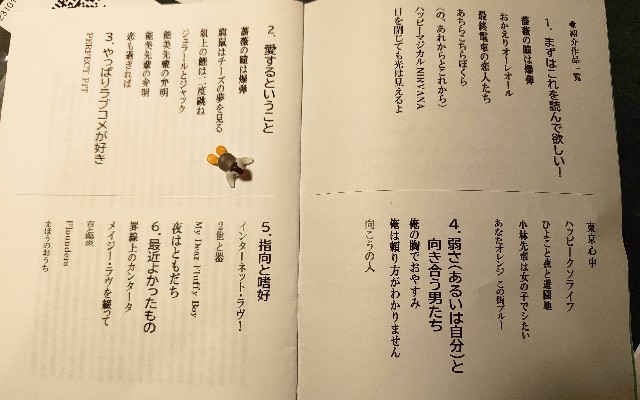 ◆紹介作品一覧
1. まずはこれを読んで欲しい!
薔薇の瞳は爆弾
おかえりオーレオール
最終電車の恋人たち
あちらこちらぼくら
(の、あれからとこれから)
ハッピーマジカルNIRVANA
目を閉じても光は見えるよ
2. 愛するということ
薔薇の瞳は爆弾
窮鼠はチーズの夢を見る
俎上の鯉は二度跳ね
ジェラールとジャック
能美先輩の弁明
能美先輩の弁明
恋も過ぎれば
3. やっぱりラブコメが好き
PERFECT FIT
東京心中
ハッピークソライフ
ひよこと夜と遊園地
小林先輩は女の子でシたい
あなたオレンジ この街ブルー
4. 弱さ(あるいは自分)と
向き合う男たち
俺の胸でおやすみ
俺は頼り方がわかりません
向こうの人
5. 指向と嗜好
インターネット・ラヴ!
2世と器
My Dear Fluffy Boy
夜はともだち
6. 最近よかったもの
罫線上のカンタータ
メイジー・ラヴを綴って
Flounders
まほうのおうち